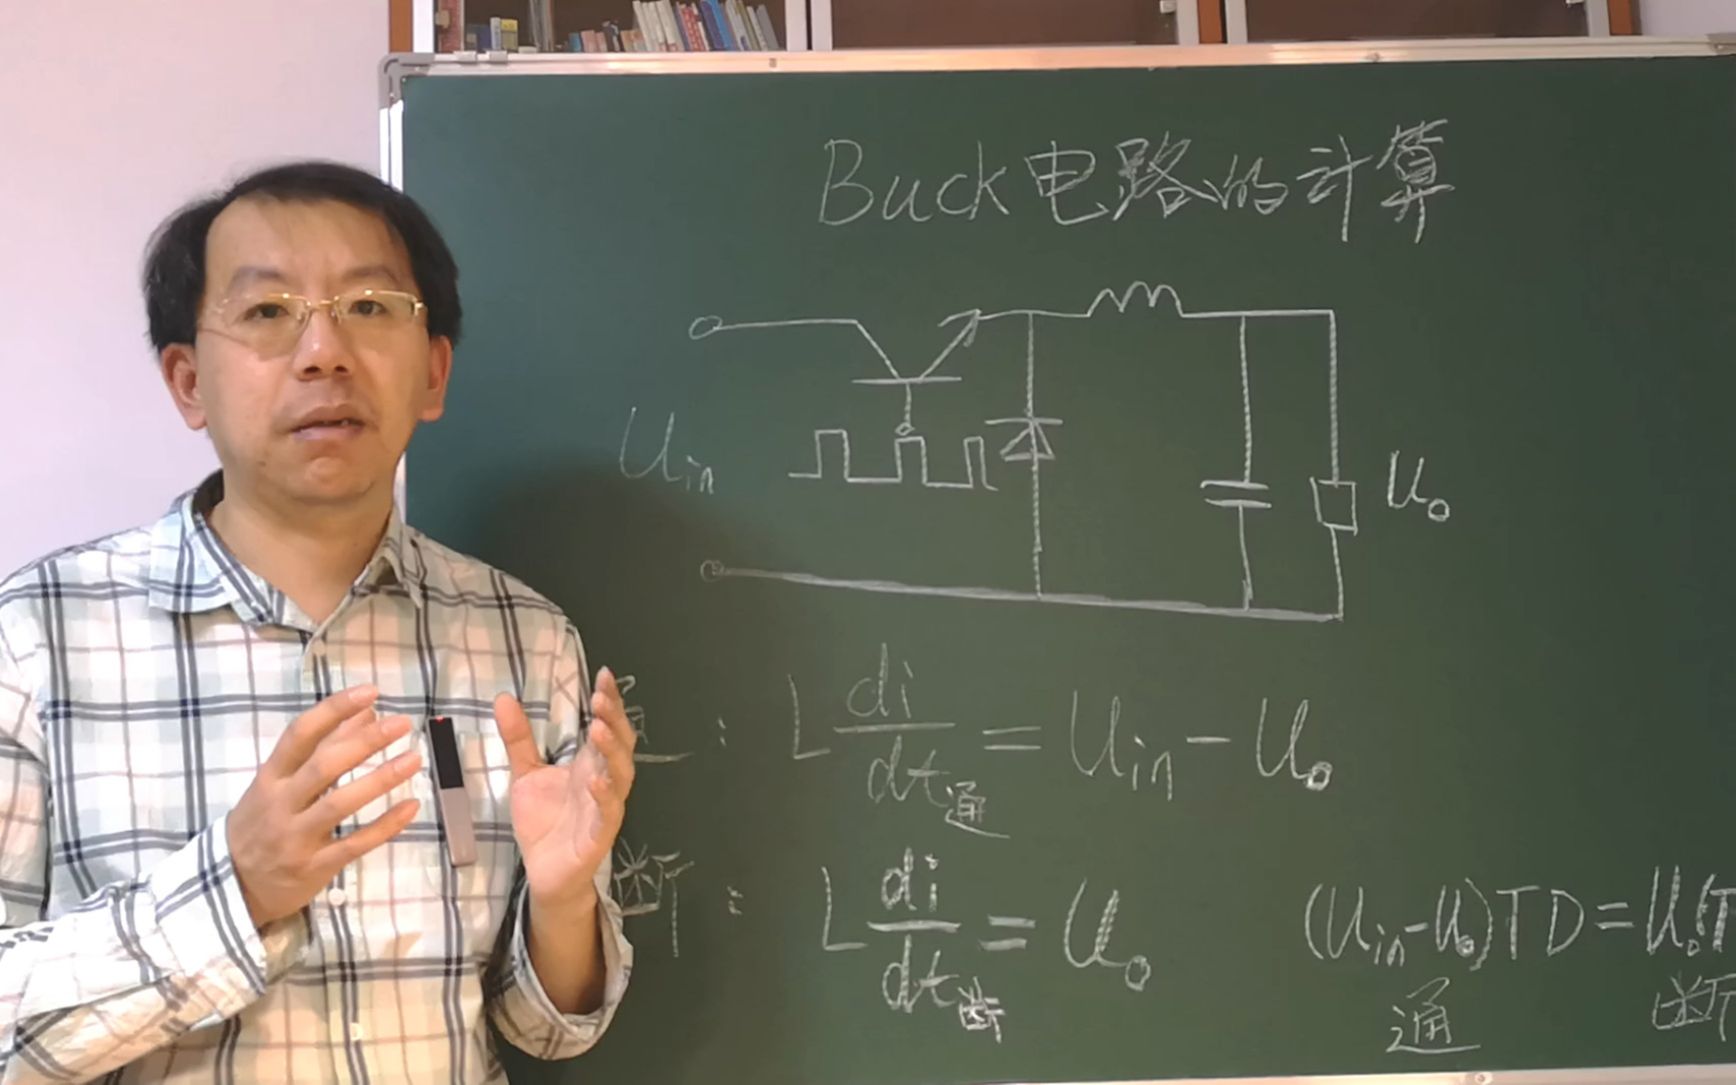 Buck电路的计算
Uin
Uo
通: L di/dt通 = Uin - Uo
断: L di/dt断 = Uo
(Uin-Uo)TD=Uo(T
通
断